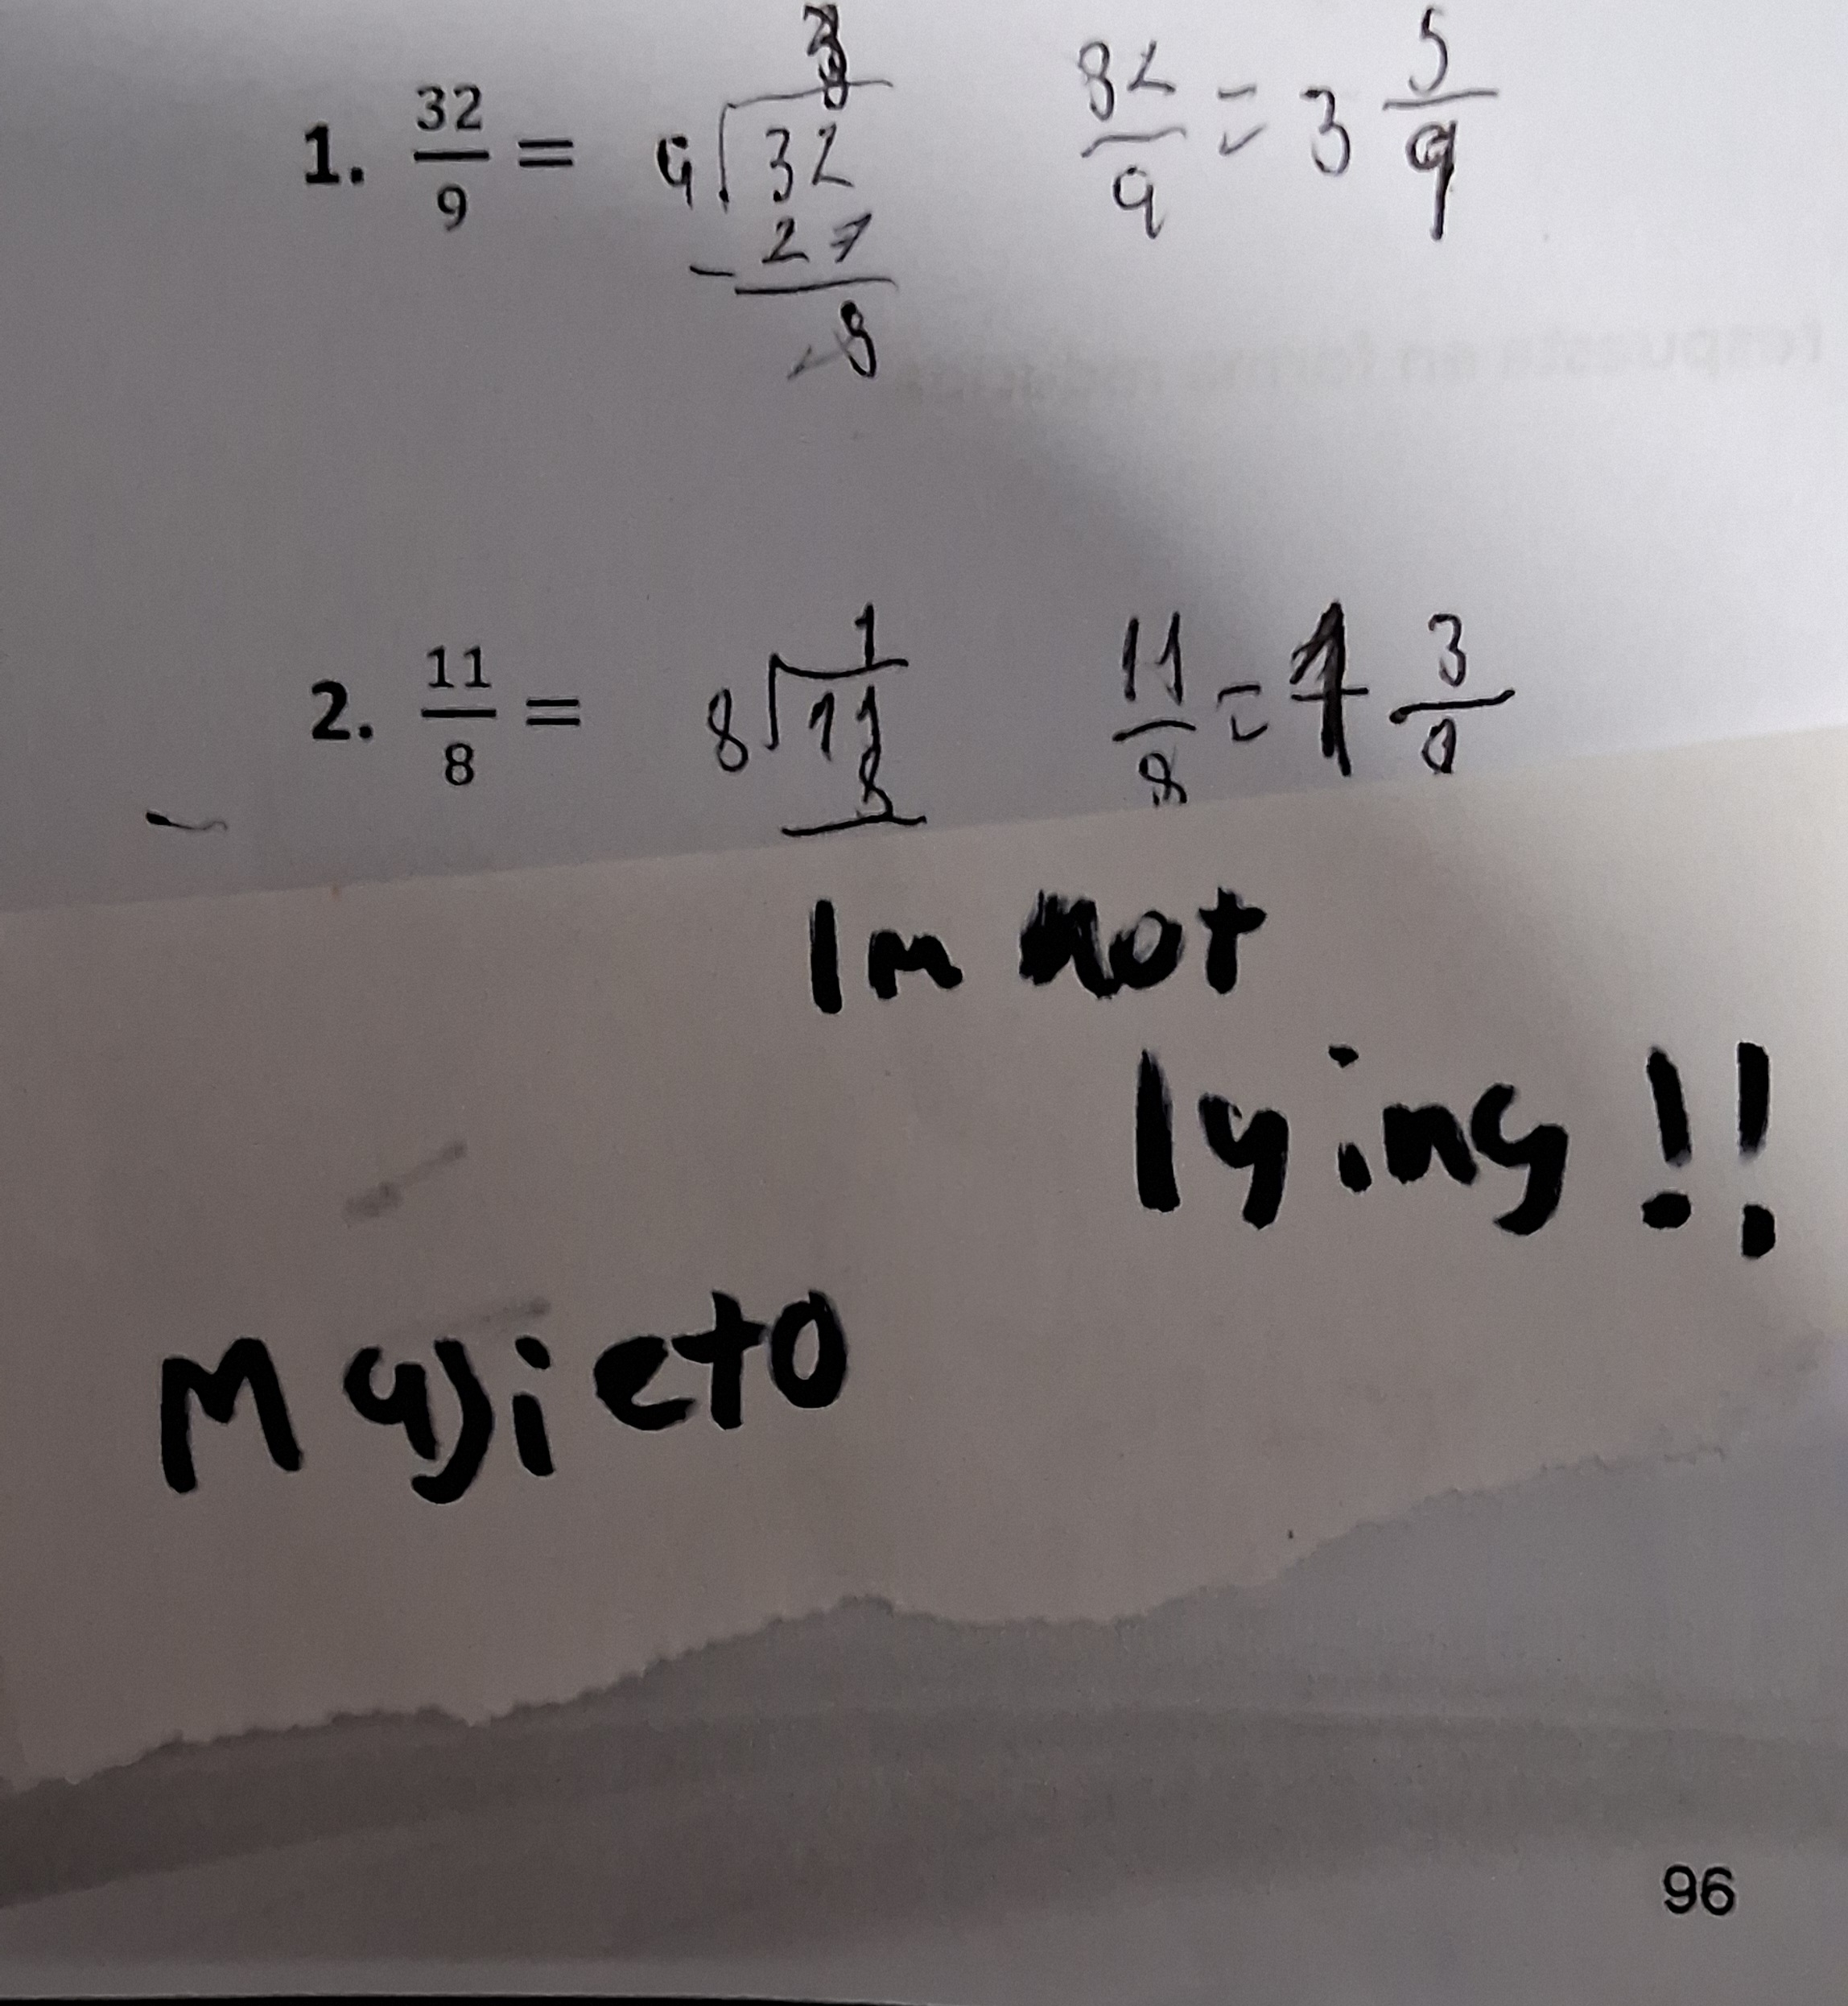 1. 32/9 = 9 32 3 32/9 = 3 5/9
- 27
8
2. 11/8 = 8 11 1 11/8 = 1 3/
8
Im not
lying!!
Majieto
96